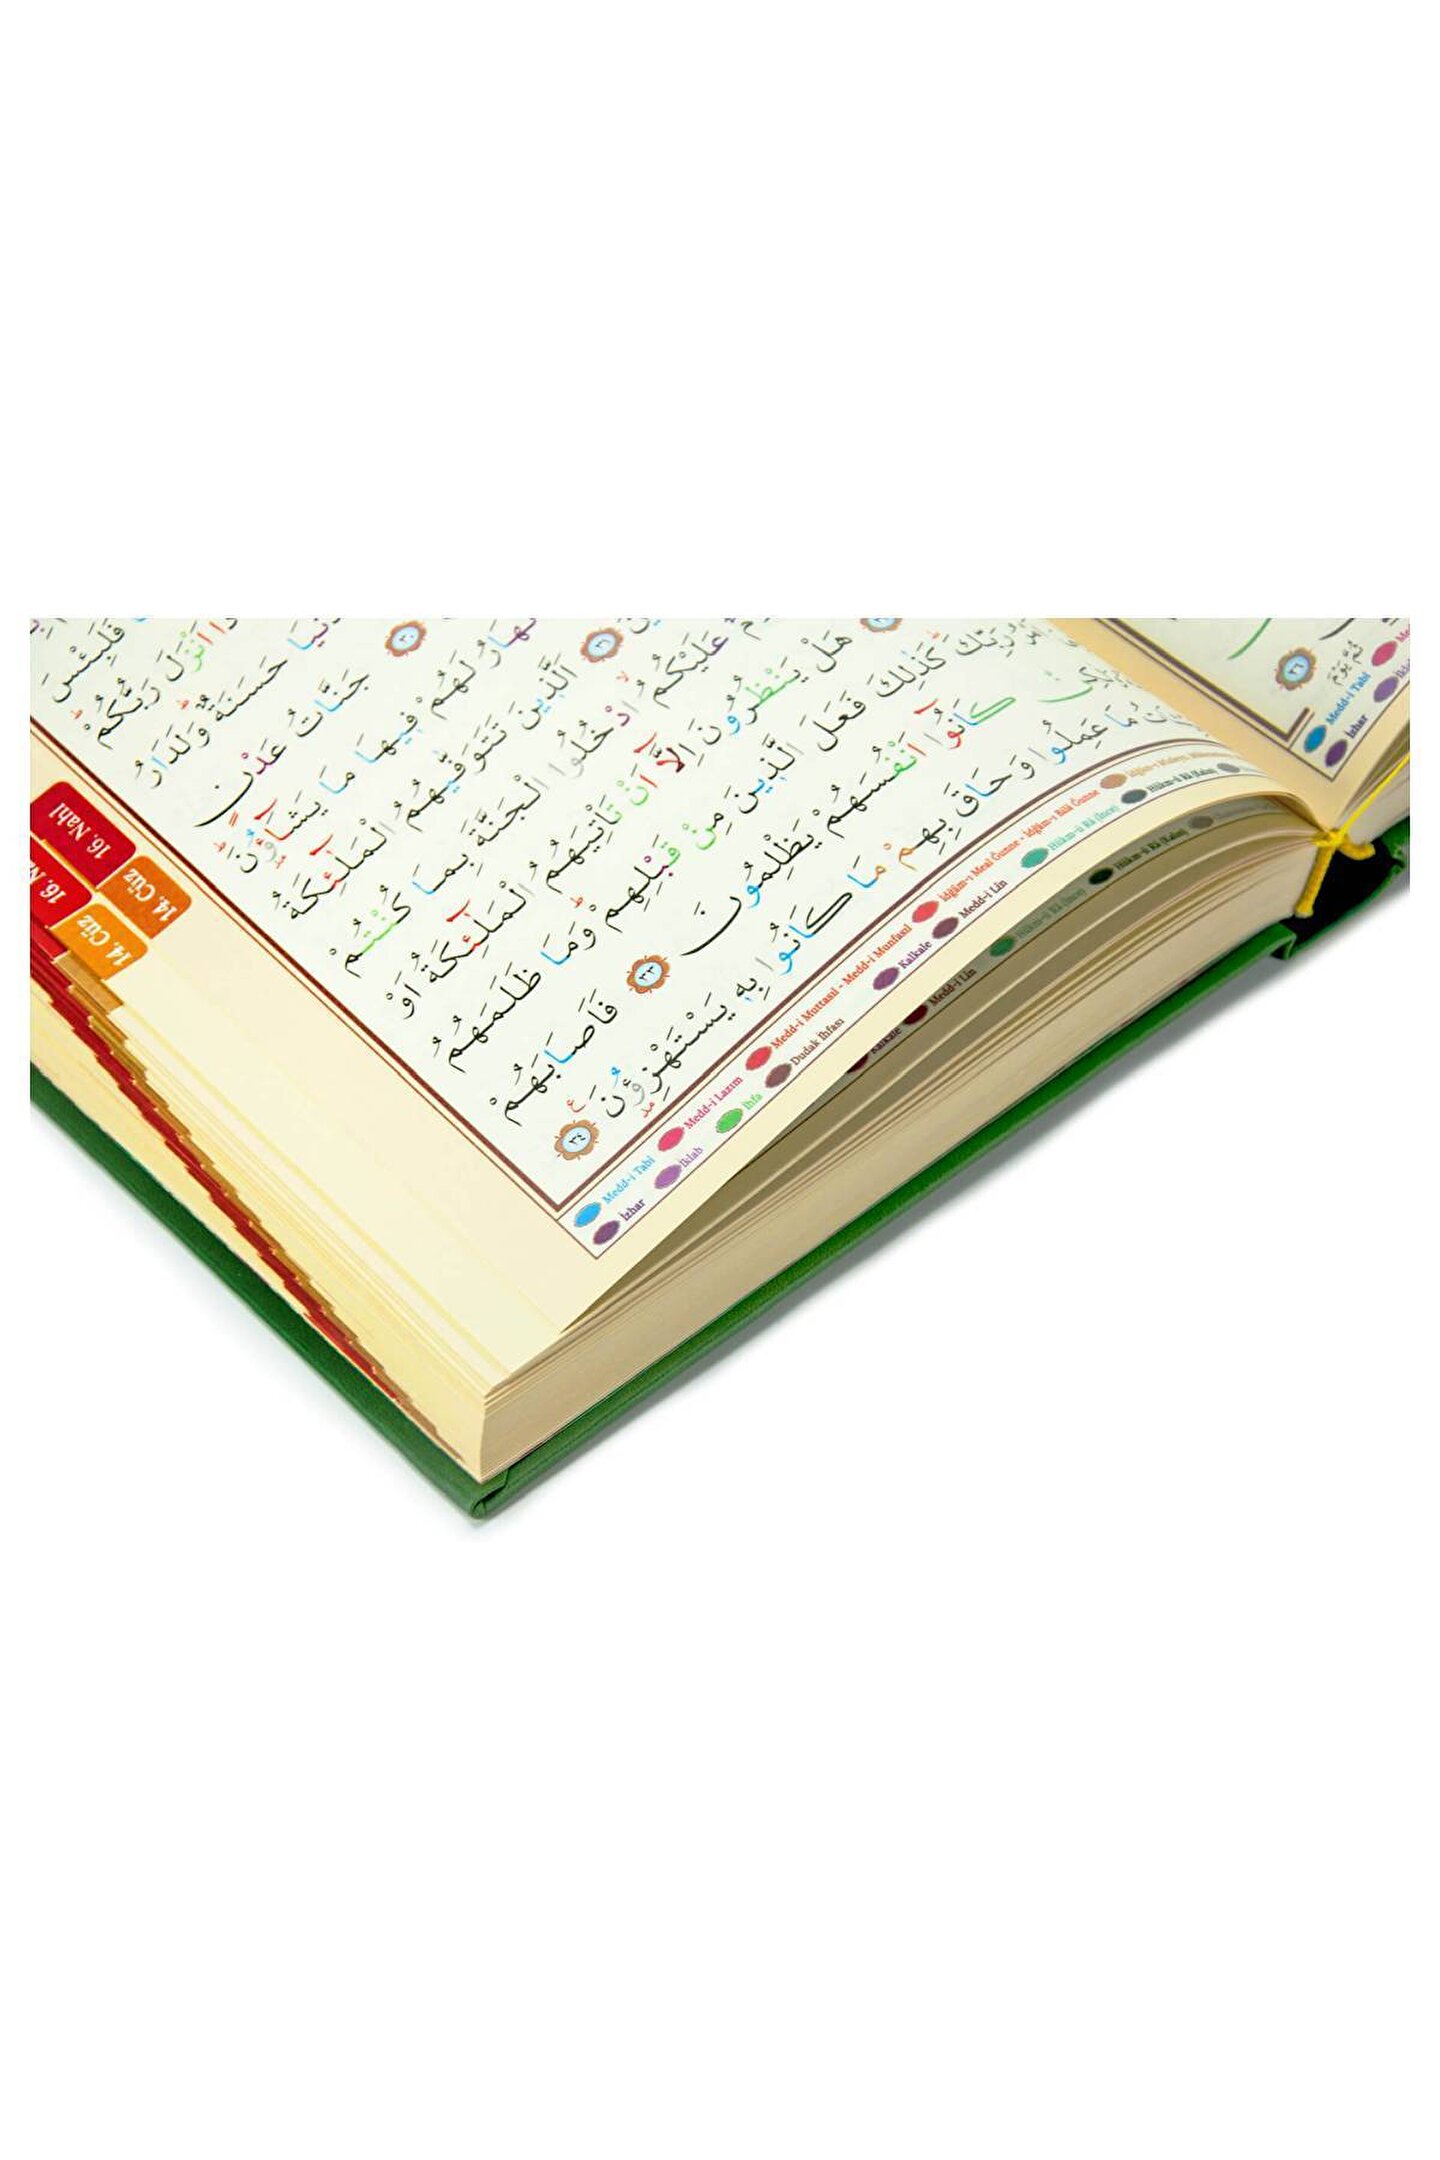 فَلَبِئْسَ
اَنْزَلَ رَبُّكُمْ
حَسَنَةٌ وَلَدَارُ
جَنَّاتُ عَدْنٍ
لَهُمْ فِيهَا مَا يَشَاؤُنَ
اَلَّذِينَ تَتَوَفّٰيهُمُ الْمَلٰٓئِكَةُ
عَلَيْكُمُ ادْخُلُوا الْجَنَّةَ بِمَا كُنْتُمْ
هَلْ يَنْظُرُونَ اِلَّٓا اَنْ تَأْتِيَهُمُ الْمَلٰٓئِكَةُ اَوْ
رَبِّكَ كَذٰلِكَ فَعَلَ الَّذِينَ مِنْ قَبْلِهِمْ وَمَا ظَلَمَهُمُ
كَانُٓوا اَنْفُسَهُمْ يَظْلِمُونَ ٣٣ فَاَصَابَهُمْ
مَا عَمِلُوا وَحَاقَ بِهِمْ مَا كَانُوا بِهِ يَسْتَهْزِؤُنَ ٣٤
Medd-i Tabi Medd-i Lazım Medd-i Muttasıl - Medd-i Munfasıl İdğâm-ı Meal Ğunne - İdğâm-ı Bilâ Ğunne
İzhar İklab İhfa Dudak İhfası Kalkale Medd-i Lin Hükm-ü Râ (İnce) Hükm-ü Râ (Kalın)
Kalkale Medd-i Lin Hükm-ü Râ (İnce) Hükm-ü Râ (Kalın)
16. Nahl
14. Cüz
14. Cüz
ثُمَّ يَوْمَ
٣٦
Medd-i Tabi
İzhar